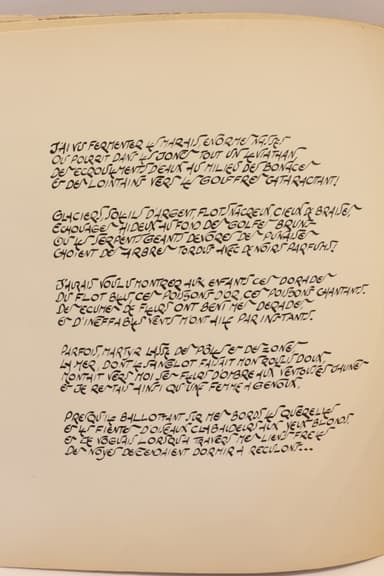 J'AI VU FERMENTER LES MARAIS, ENORMES NASSES
OU POURRIT DANS LES JONCS TOUT UN LEVIATHAN,
DES ECROULEMENTS D'EAUX AU MILIEU DES BONACES
ET DES LOINTAINS VERS LES GOUFFRES CATARACTANT!
GLACIERS, SOLEILS D'ARGENT, FLOTS NACREUX, CIEUX DE BRAISES,
ECHOUAGES HIDEUX AU FOND DES GOLFES BRUNS
OU LES SERPENTS GEANTS DEVORES DES PUNAISES
CHOIENT DES ARBRES TORDUS AVEC DE NOIRS PARFUMS!
J'AURAIS VOULU MONTRER AUX ENFANTS CES DORADES
DU FLOT BLEU, CES POISSONS D'OR, CES POISSONS CHANTANTS.
DES ECUMES DE FLEURS ONT BENI MES DERADES
ET D'INEFFABLES VENTS M'ONT AILE PAR INSTANTS.
PARFOIS, MARTYR LASSE DES POLES ET DES ZONES
LA MER, DONT LE SANGLOT FAISAIT MON ROULIS DOUX
MONTAIT VERS MOI SES FLEURS D'OMBRE AUX VENTOUSES JAUNES
ET JE RESTAIS AINSI QU'UNE FEMME A GENOUX.
PRESQU'ILE BALLOTTANT SUR MES BORDS LES QUERELLES
ET LES FIENTES D'OISEAUX CLABAUDEURS AUX YEUX BLONDS
ET JE VOGUAIS LORSQU'A TRAVERS MES LIENS FRELES
DES NOYES DESCENDAIENT DORMIR A RECULONS...